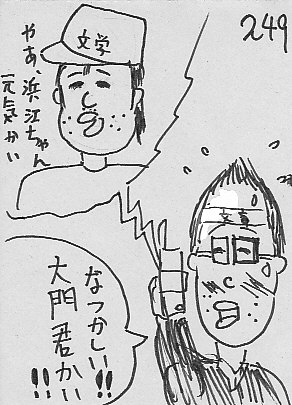 249
文学
やあ、浜江ちゃん
元気かい
文
なつかしい!!
大門君かい!!